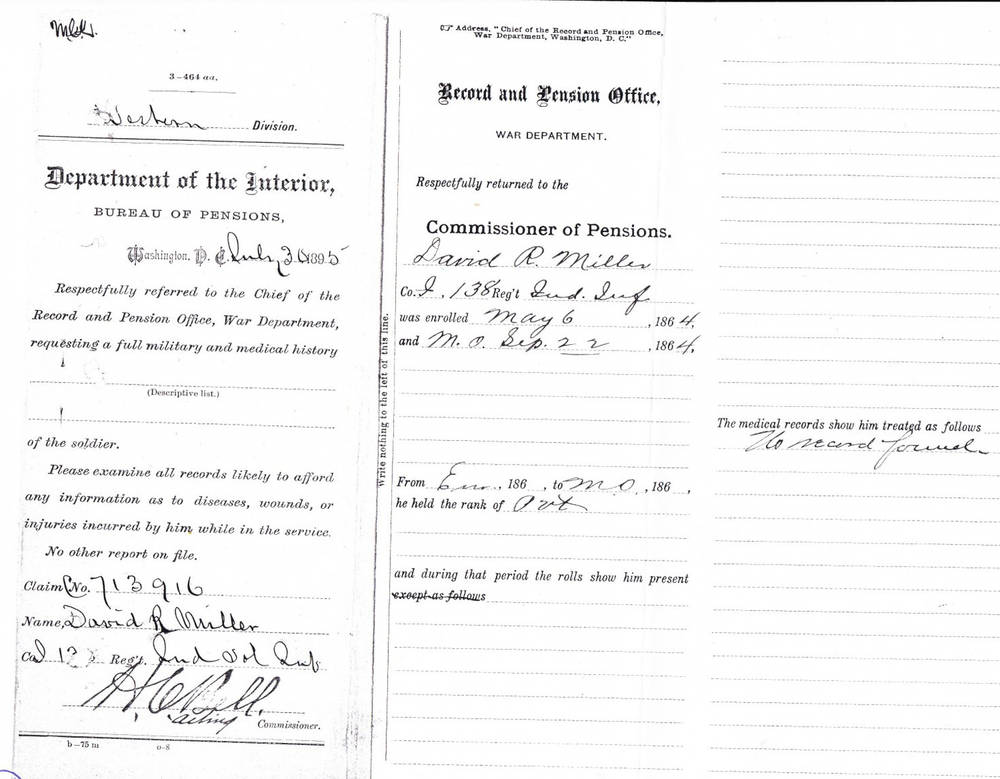 3–464 aa.
Western Division.
Department of the Interior,
BUREAU OF PENSIONS,
Washington, D. C. July 3 1895
Respectfully referred to the Chief of the
Record and Pension Office, War Department,
requesting a full military and medical history
(Descriptive list.)
of the soldier.
Please examine all records likely to afford
any information as to diseases, wounds, or
injuries incurred by him while in the service.
No other report on file.
Claim No. 713916
Name, David R Miller
Co. I 13 Reg't. Ind Vol Inf
H C Bell.
acting Commissioner.
b–75 m o-8
Write nothing to the left of this line.
☞ Address, "Chief of the Record and Pension Office,
War Department, Washington, D. C."
Record and Pension Office,
WAR DEPARTMENT.
Respectfully returned to the
Commissioner of Pensions.
David R. Miller
Co. I, 138 Reg't Ind. Inf
was enrolled May 6, 1864,
and M. O. Sep. 22, 1864,
From En., 186 , to M O., 186 ,
he held the rank of Pvt
and during that period the rolls show him present
except as follows
The medical records show him treated as follows
No record found.